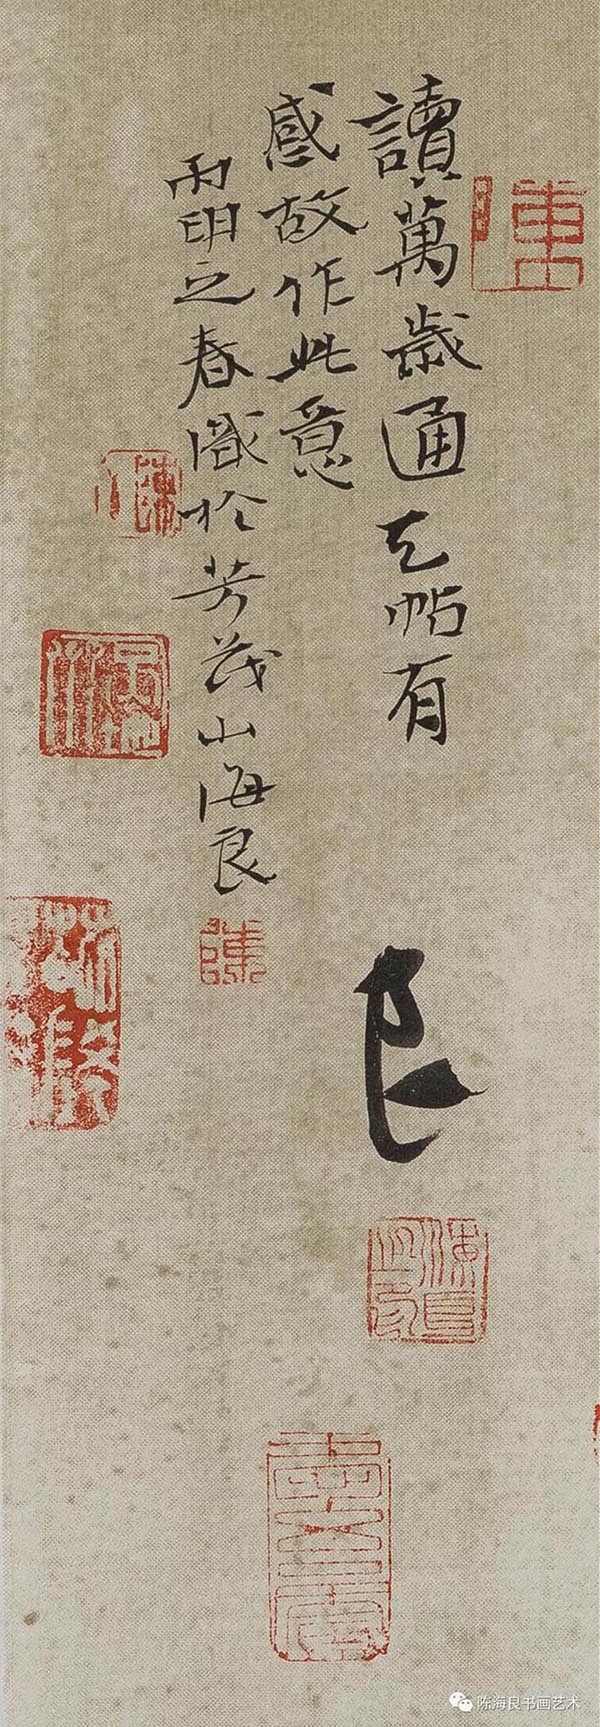 讀萬歲通天帖有
感故作此意
丙申之春識於芳茂山海良
陳
良
陈海良书画艺术